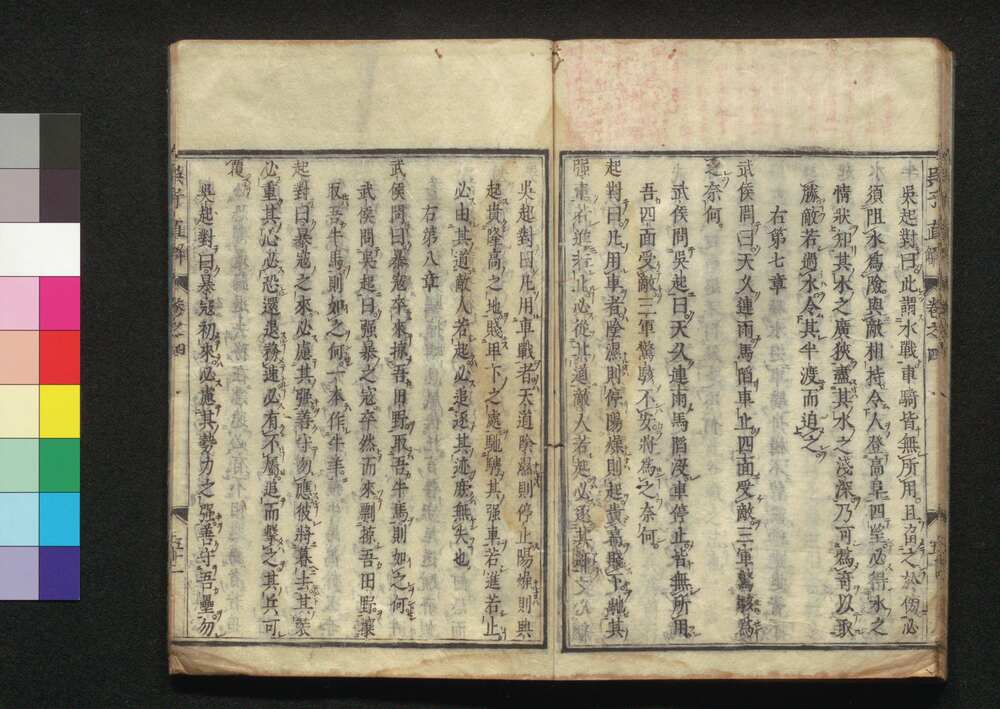 吳子直解 卷之四
吳起對曰此謂水戰車騎皆無所用且留之於傍必
水須阻水爲險與敵相持令人登高阜四望必得水之
情狀知其水之廣狹盡其水之淺深乃可爲奇以取
勝敵若過水令其半渡而迫之
右第七章
武侯問曰天久連雨馬陷車止四面受敵三軍驚駭爲
之奈何
武侯問吳起曰天久連雨馬陷沒車停止皆無所用
吾四面受敵三軍驚駭不安將爲之奈何
起對曰凡用車者陰濕則停陽燥則起貴高賤下馳其
強車若進若止必從其道敵人若起必逐其跡
吳起對曰凡用車戰者天道陰濕則停止陽燥則興
起貴隆高之地賤卑下之處馳騁其强車若進若止
必由其道敵人若起必追逐其迹庶無失也
右第八章
武侯問曰暴寇卒來掠吾田野取吾牛馬則如之何
武侯問吳起曰强暴之寇卒然而來剽掠吾田野攘
取吾牛馬則如之何一本作牛羊
起對曰暴寇之來必慮其强善守勿應彼將暮去其裝
必重其心必恐還退務速必有不屬追而擊之其兵可
覆
吳起對曰暴寇初來必慮其勢力之强善守吾壘勿
吳子直解 卷之四